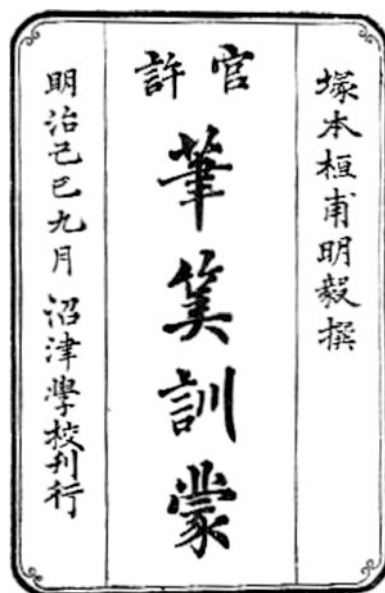 塚本桓甫明毅撰
官許
筆筭訓蒙
明治己巳九月 沼津學校刊行